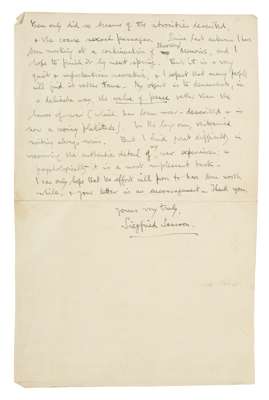 have only did so because of the atrocities described
& the coarse passages. Since last autumn I have
been working at a continuation of Sherston's Memoirs, and I
hope to finish it by next spring. But it is a very
quiet & unpretentious narrative, & I expect that many people
will find it rather tame. My object is to demonstrate, in
a delicate way, the value of peace rather than the
horror of war (which has been over-described & is
now a boring platitude). In the long run, restrained
writing always wins. But I find great difficulty in
recovering the authentic detail of my war experiences, &
psychologically it is a most unpleasant task.
I can only hope that the effort will prove to have been worth
while, & your letter is an encouragement. Thank you.
Yours very truly,
Siegfried Sassoon.